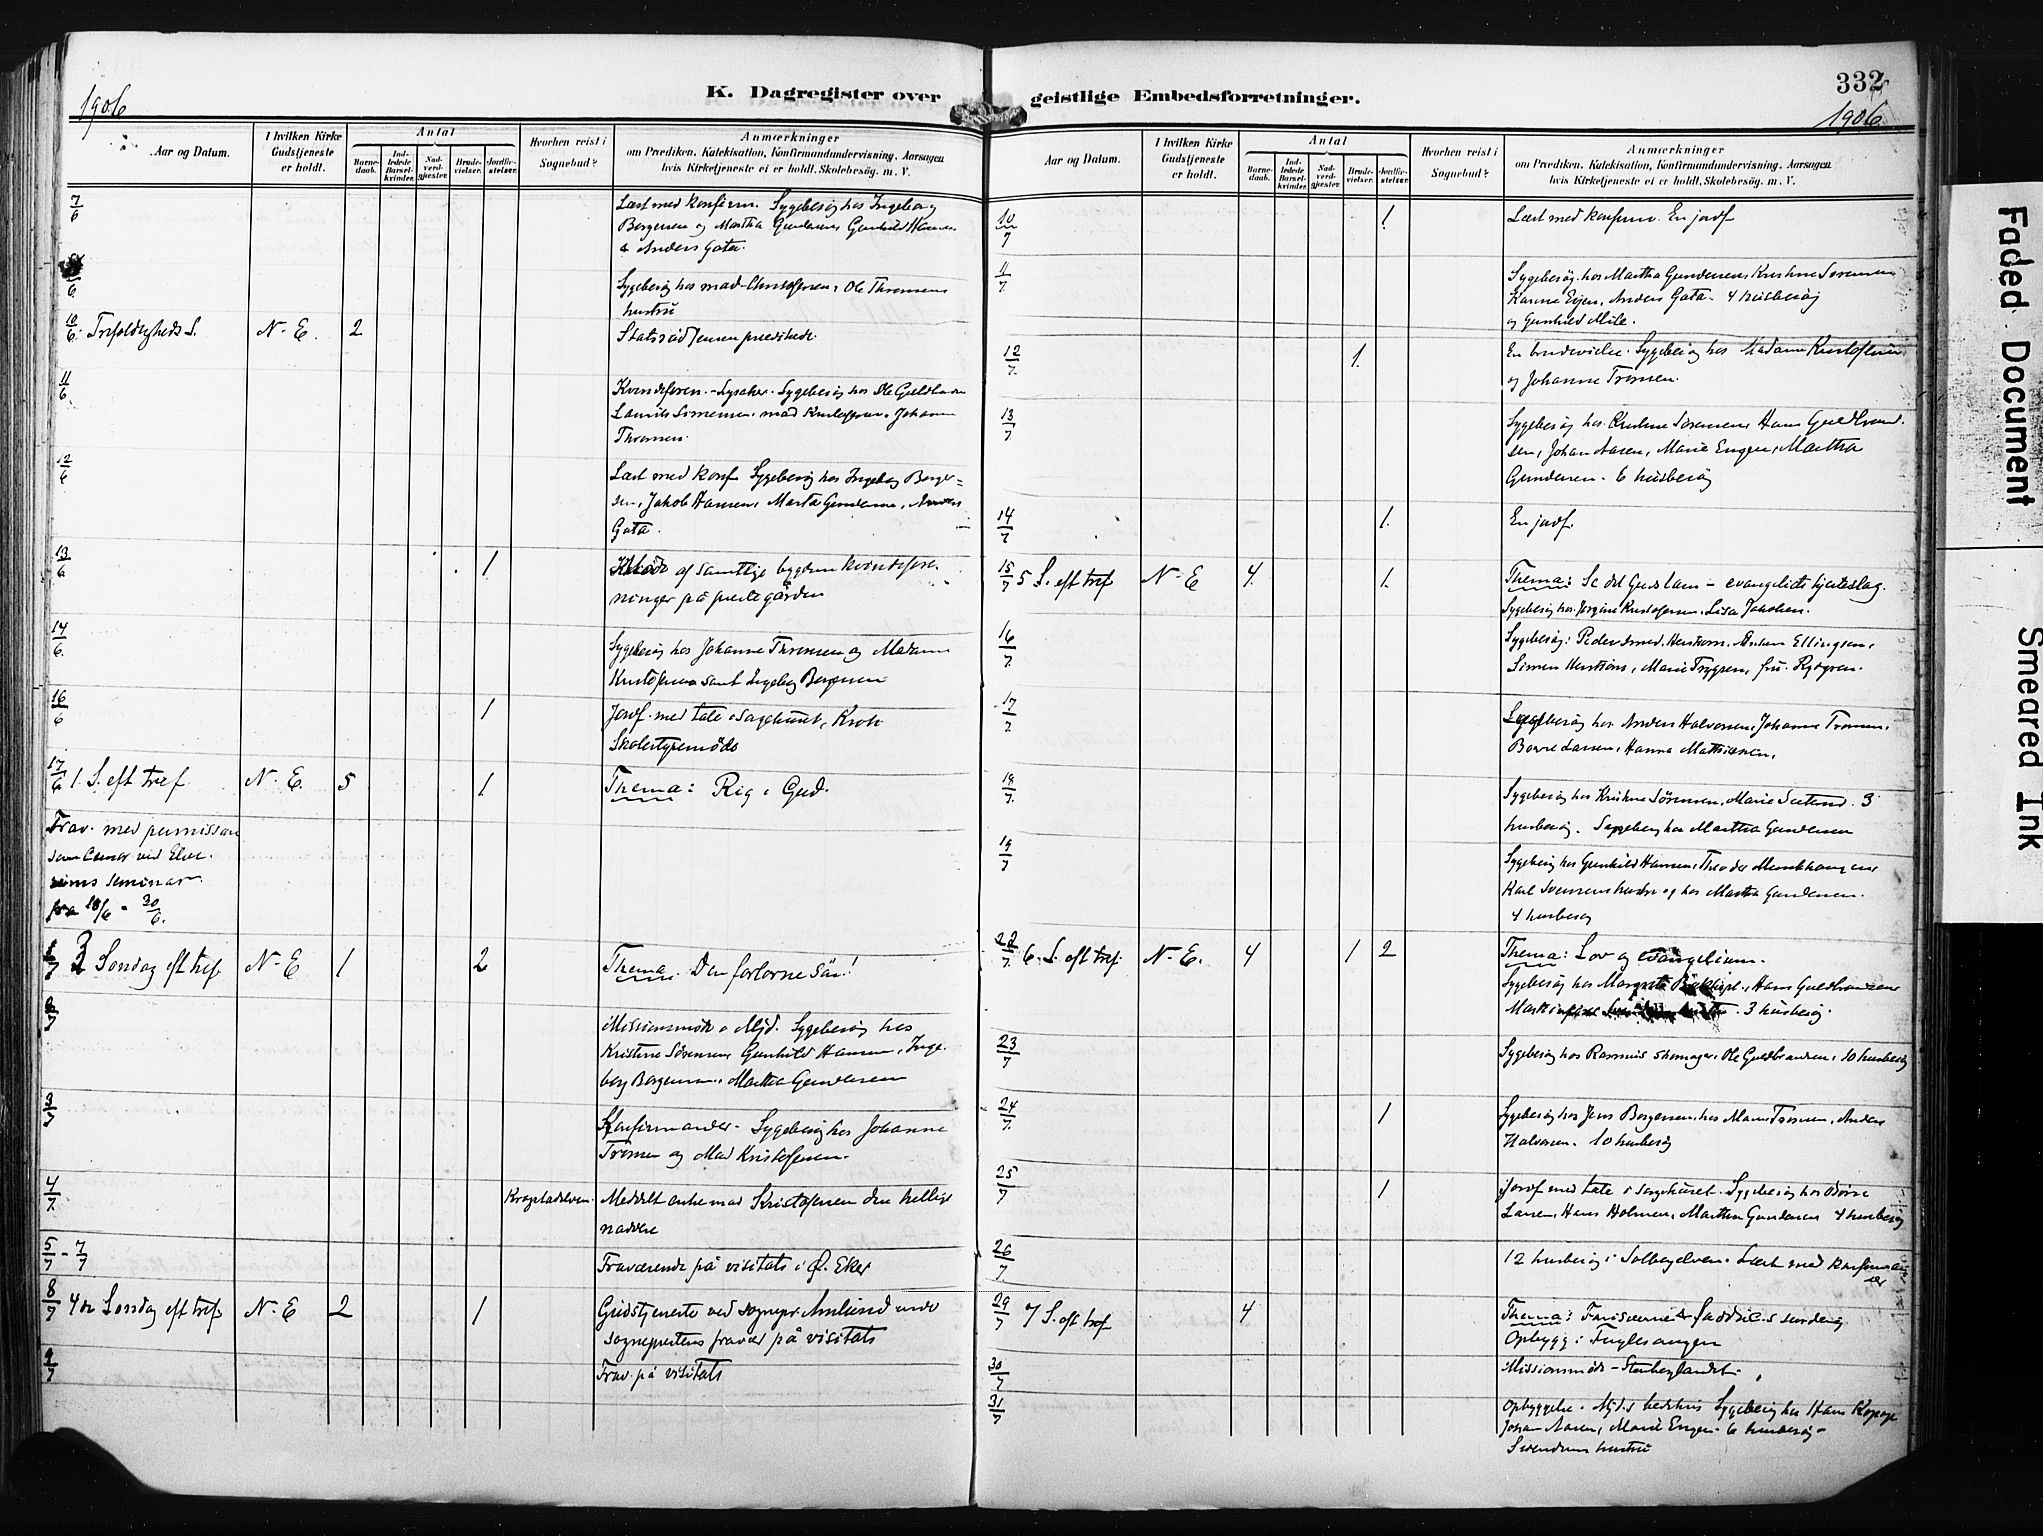 1906
K. Dagregister over
Aar og Datum.
I hvilken Kirke Gudstjeneste er holdt.
Antal
Barnedaab.
Indledede Barselkvinder.
Nadverdgjester.
Brudevielser.
Jordfæstelser.
Hvorhen reist i Sognebud?
Anmærkninger
om Prædiken, Katekisation, Konfirmandundervisning, Aarsagen
hvis Kirketjeneste ei er holdt, Skolebesøg m. V.
7/6 Læst med konfirm. Sygebesøg hos Ingeborg
Borgersen og Martha Gundersen, Gunhild Hansen
& Anders Gata.
Sygebesøg hos mad. Christoffersen, Ole Thronsens
hustru
10/6 Trefoldigheds S. N. E. 2 Statsråd Jensen prædikede.
11/6 Kvindeforen. Lysaker. Sygebesøg hos Ole Guldbrandsen
Thronsen.
12/6 Læst med konf Sygebesøg hos Ingeborg Borger-
sen, Jakob Hansen, Marta Gundersen, Anders
Gata.
13/6 1 af samtlige bygdens kvindefore-
ninger på prestegården
14/6 Sygebesøg hos Johanne Thronsen og Madam
Kristofersen samt Ingeborg Borgersen
16/6 1 Jordf. med tale i sørgehuset,
Skolestyremøde
17/6 1 S. eft tref N. E. 5 1 Thema: Rig i Gud.
Frav. med permission
som Censor ved Elve-
rums seminar
fra 18/6 - 30/6.
1/7 3 Søndag eft tref N. E 1 2 Thema: Den fortorne søn!
2/7 Missionsmøde i Mjd. Sygebesøg hos
Kristine Sørensen, Gunhild Hansen, Inge-
borg Borgersen, Martha Gundersen
3/7 Konfirmander. Sygebesøg hos Johanne
Tronsen og Mad Kristofersen.
4/7 Krogstadelven. Meddelt enke mad Kristofersen den hellige
nadvere
5/7 - 7/7 Fraværende på visitats i Ø. Eker
8/7 4de Søndag eft tref N. E 2 1 Gudstjeneste ved sognepr. Amlund under
sogneprestens fravær på visitats
9/7 Frav. på visitats
332
1906
geistlige Embedsforretninger.
Aar og Datum.
I hvilken Kirke Gudstjeneste er holdt.
Antal
Barnedaab.
Indledede Barselkvinder.
Nadverdgjester.
Brudevielser.
Jordfæstelser.
Hvorhen reist i Sognebud?
Anmærkninger
om Prædiken, Katekisation, Konfirmandundervisning, Aarsagen
hvis Kirketjeneste ei er holdt, Skolebesøg m. V.
10/7 1 Læst med konfirm. En jordf
11/7 Sygebesøg hos Martha Gundersen, Kristine Sørensen
Karine Eijen, Anders Gata. 4 husbesøg
og Gunhild Mile.
12/7 1. En brudevielse. Sygebesøg hos Madam Kristofersen
og Johanne Tronsen.
13/7 Sygebesøg hos Kristine Sørensen, Hans Guldbrand-
sen, Johan Aasen, Marie Engen, Martha
Gundersen. 6 husbesøg
14/7 1. En jordf.
15/7 5 S. eft tref N. E 4. 1. Thema: Se det Guds lam - evangeliets hjerteslag.
Sygebesøg hos Jørgine Kristofersen, Lisa Jakobsen.
16/7 Sygebesøg: Peder smed, Ellingsen,
Simen Marie Trygsen, fru
17/7 Sygebesøg hos Anders Halvorsen, Johanne Tronsen,
Børre Larsen, Hanna Mathiesen.
Sygebesøg hos Kristine Sørensen, Marie 3
husbesøg. Sygebesøg hos Martha Gundersen
19/7 Sygebesøg hos Gunhild Hansen, Theodor
Karl Svensens hustru og hos Martha Gundersen.
4 husbesøg
22/7 6. S. eft tref. N. E. 4 1 2 Thema: Lov og evangelium.
Sygebesøg hos Hans Guldbrandsen
3 husbesøg.
23/7 Sygebesøg hos Rasmus skomager, Ole Guldbrandsen, 10 husbesøg
24/7 1 Sygebesøg hos Jens Borgersen, hos Mam Tronsen, Anders
Halvorsen. 10 husbesøg
25/7 1 Jordf med tale i sørgehuset. Sygebesøg hos Børre
Larsen, Hans Holmen, Martha Gundersen 4 husbesøg
26/7 12 husbesøg i Solbergelven. Læst med konfirmander
29/7 7 S. eft tref 4 Thema: Farisæernes & sadducæernes surdeig
Opbygg i Fuglesangen
30/7 Missionsmøde - Stenberglandet.
31/7 Opbyggelse. Mjd.s bedehus Sygebesøg hos Hans
Johan Aasen, Marie Engen. 6 husbesøg -
Svendsens hustru
Faded Document
Smeared Ink